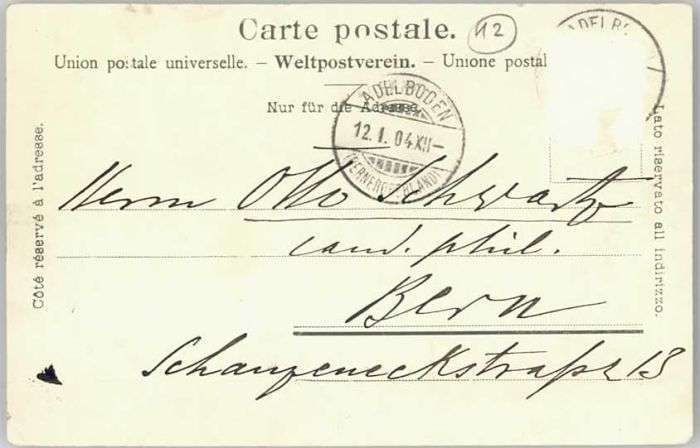 Carte postale.
12
Union postale universelle. – Weltpostverein. – Unione postal
Nur für die Adresse.
ADELBODEN
12. I. 04 XII–
(BERNEROBERLAND)
ADELB
Côté réservé à l'adresse.
Lato riservato all indirizzo.
Herrn Otto Schwartz
cand. phil.
Bern
Schanzeneckstraße 13